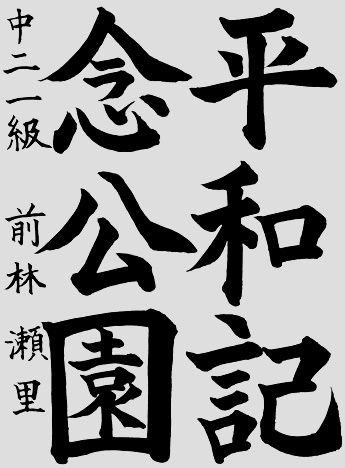 平和記
念公園
中二一級 前林瀬里